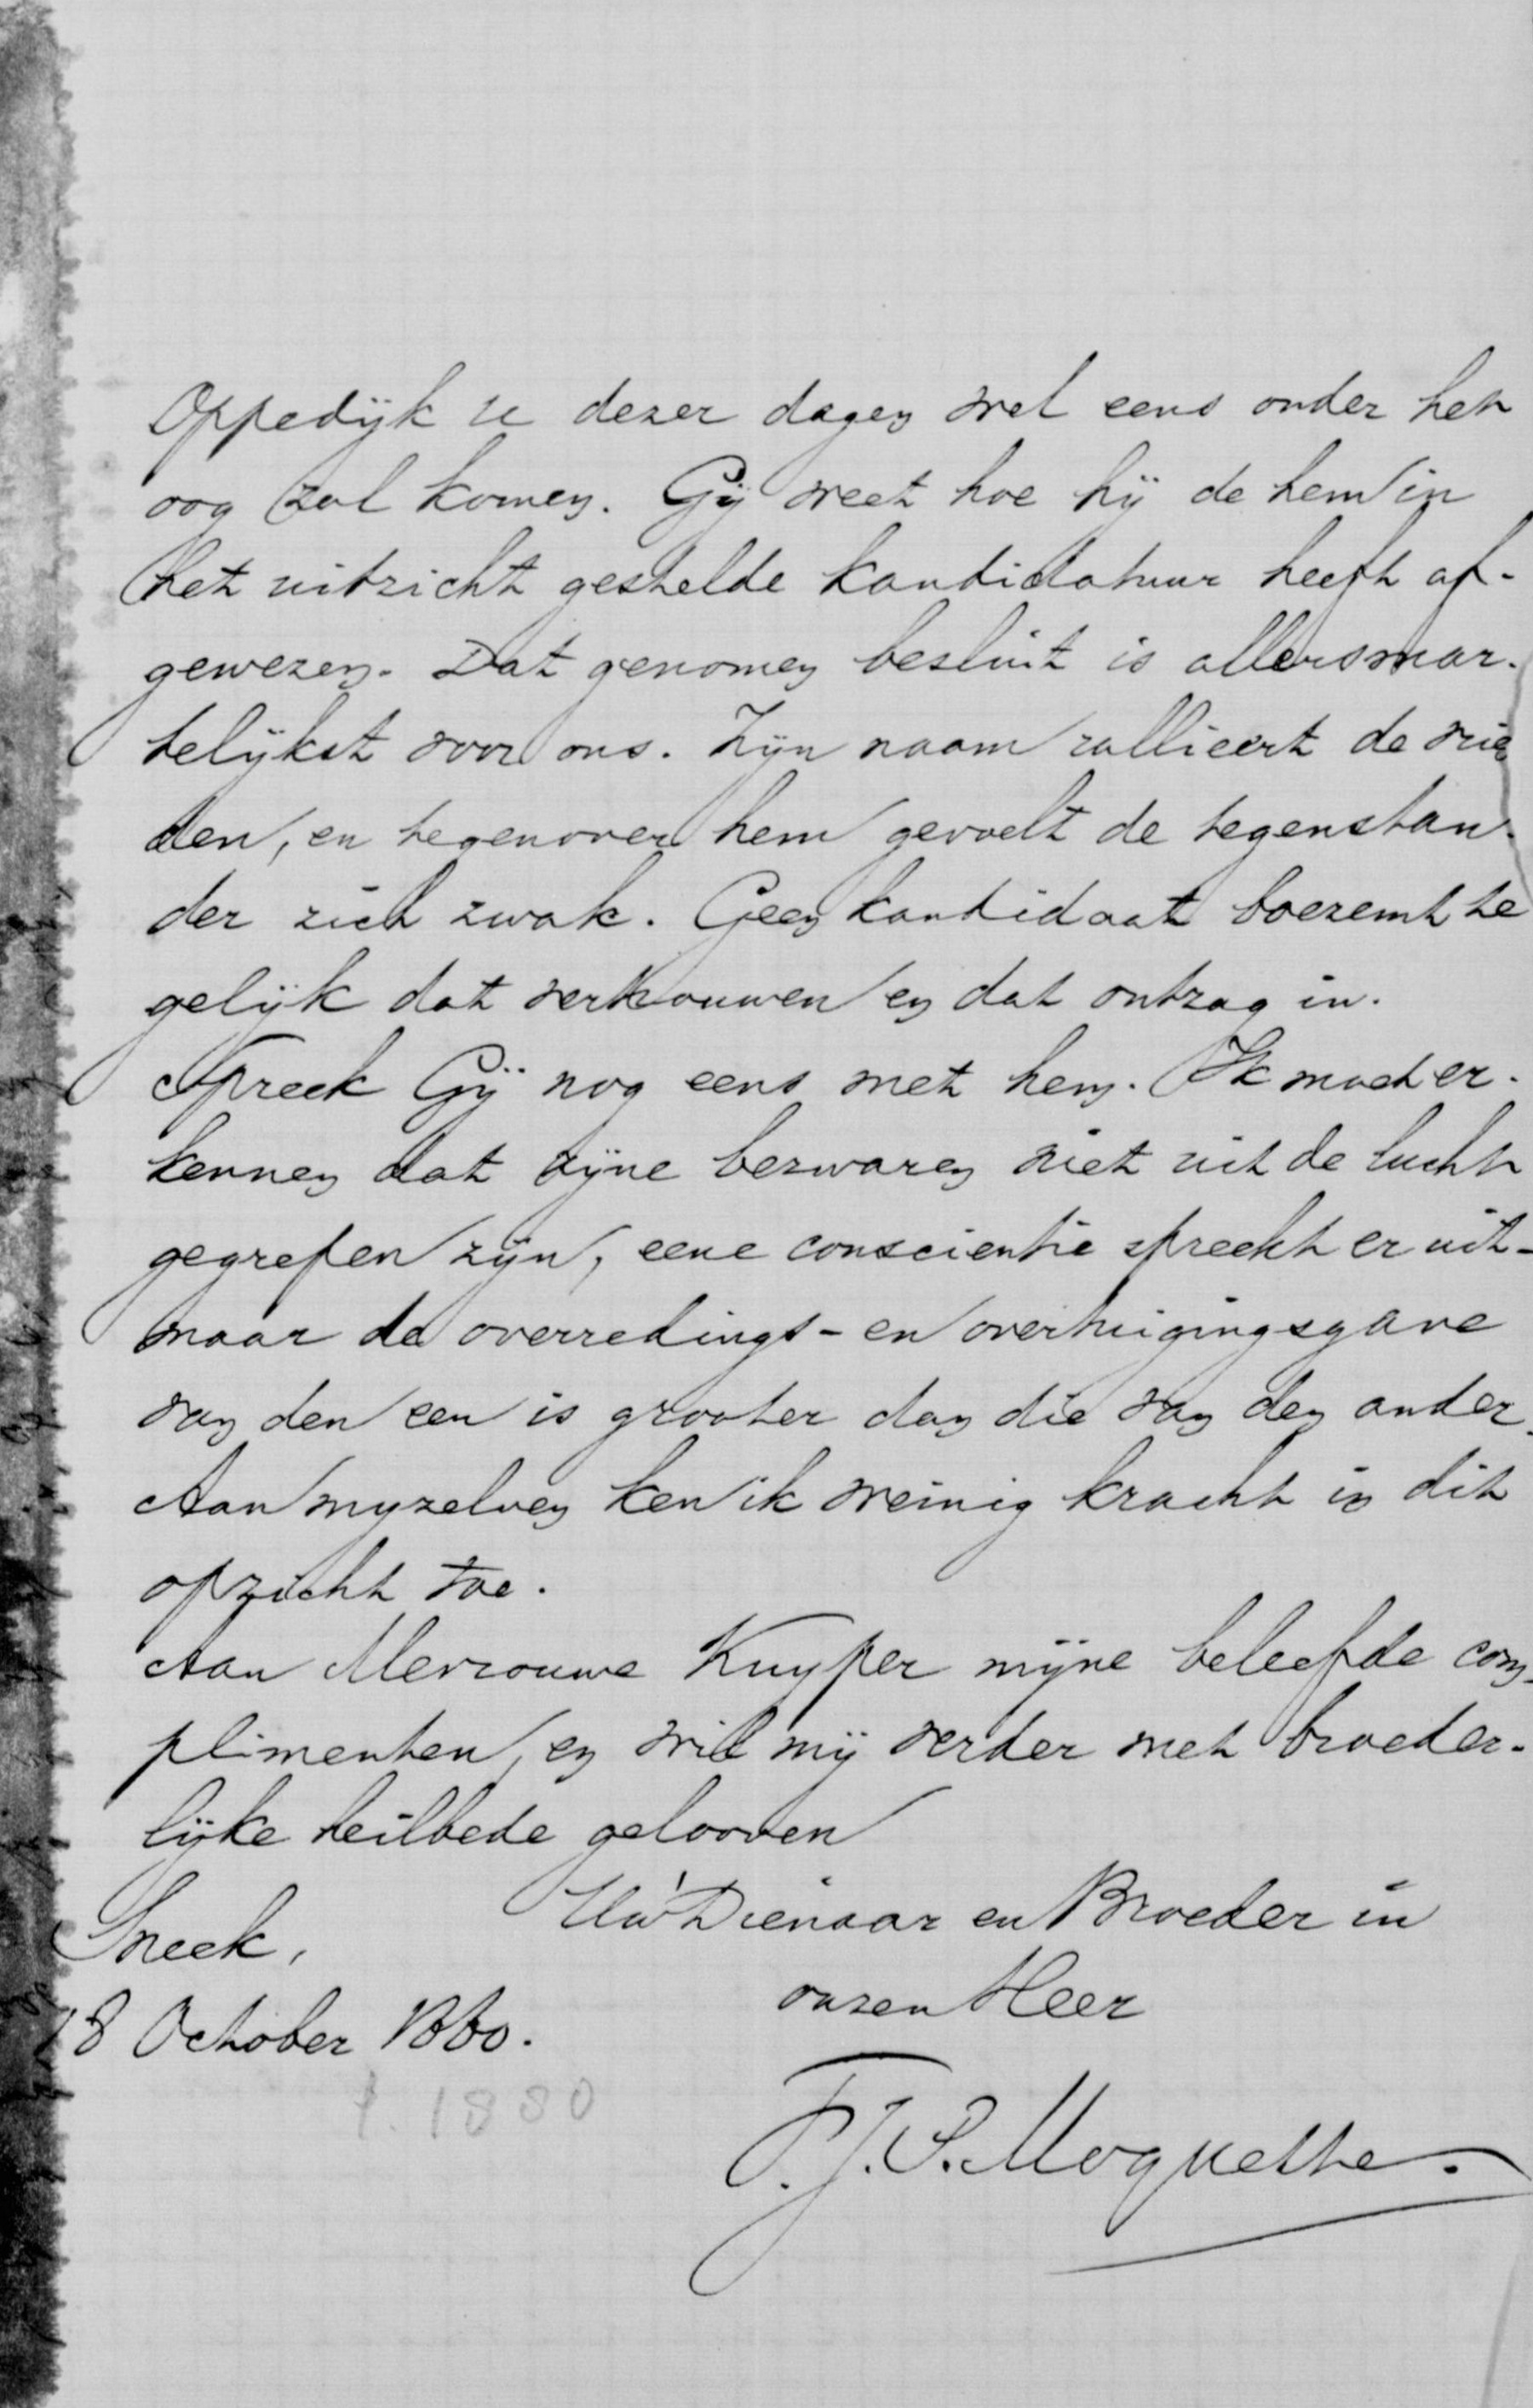 Oppedijk U dezer dagen wel eens onder het
oog zal komen. Gij weet hoe hij de hem in
het uitzicht gestelde kandidatuur heeft af-
gewezen. Dat genomen besluit is allersmar-
telijkst voor ons. Zijn naam rallieert de vrie
den, en tegenover hem gevoelt de tegenstan-
der zich zwak. Geen kandidaat boezemt te
gelijk dat vertrouwen en dat ontzag in.
Spreek Gij nog eens met hem. Ik moet er-
kennen dat zijne bezwaren niet uit de lucht
gegrepen zijn, eene conscientie spreekt er uit-
maar de overredings- en overtuigingsgave
van den een is grooter dan die van den ander.
Aan mijzelven ken ik weinig kracht in dit
opzicht toe.
Aan Mevrouwe Kuyper mijne beleefde com-
plimenten, en wil mij verder met broeder-
lijke heilbede gelooven
Uw Dienaar en Broeder in
onzen Heer
Sneek,
18 October 1880.
1880
P.J.S. Moquette.